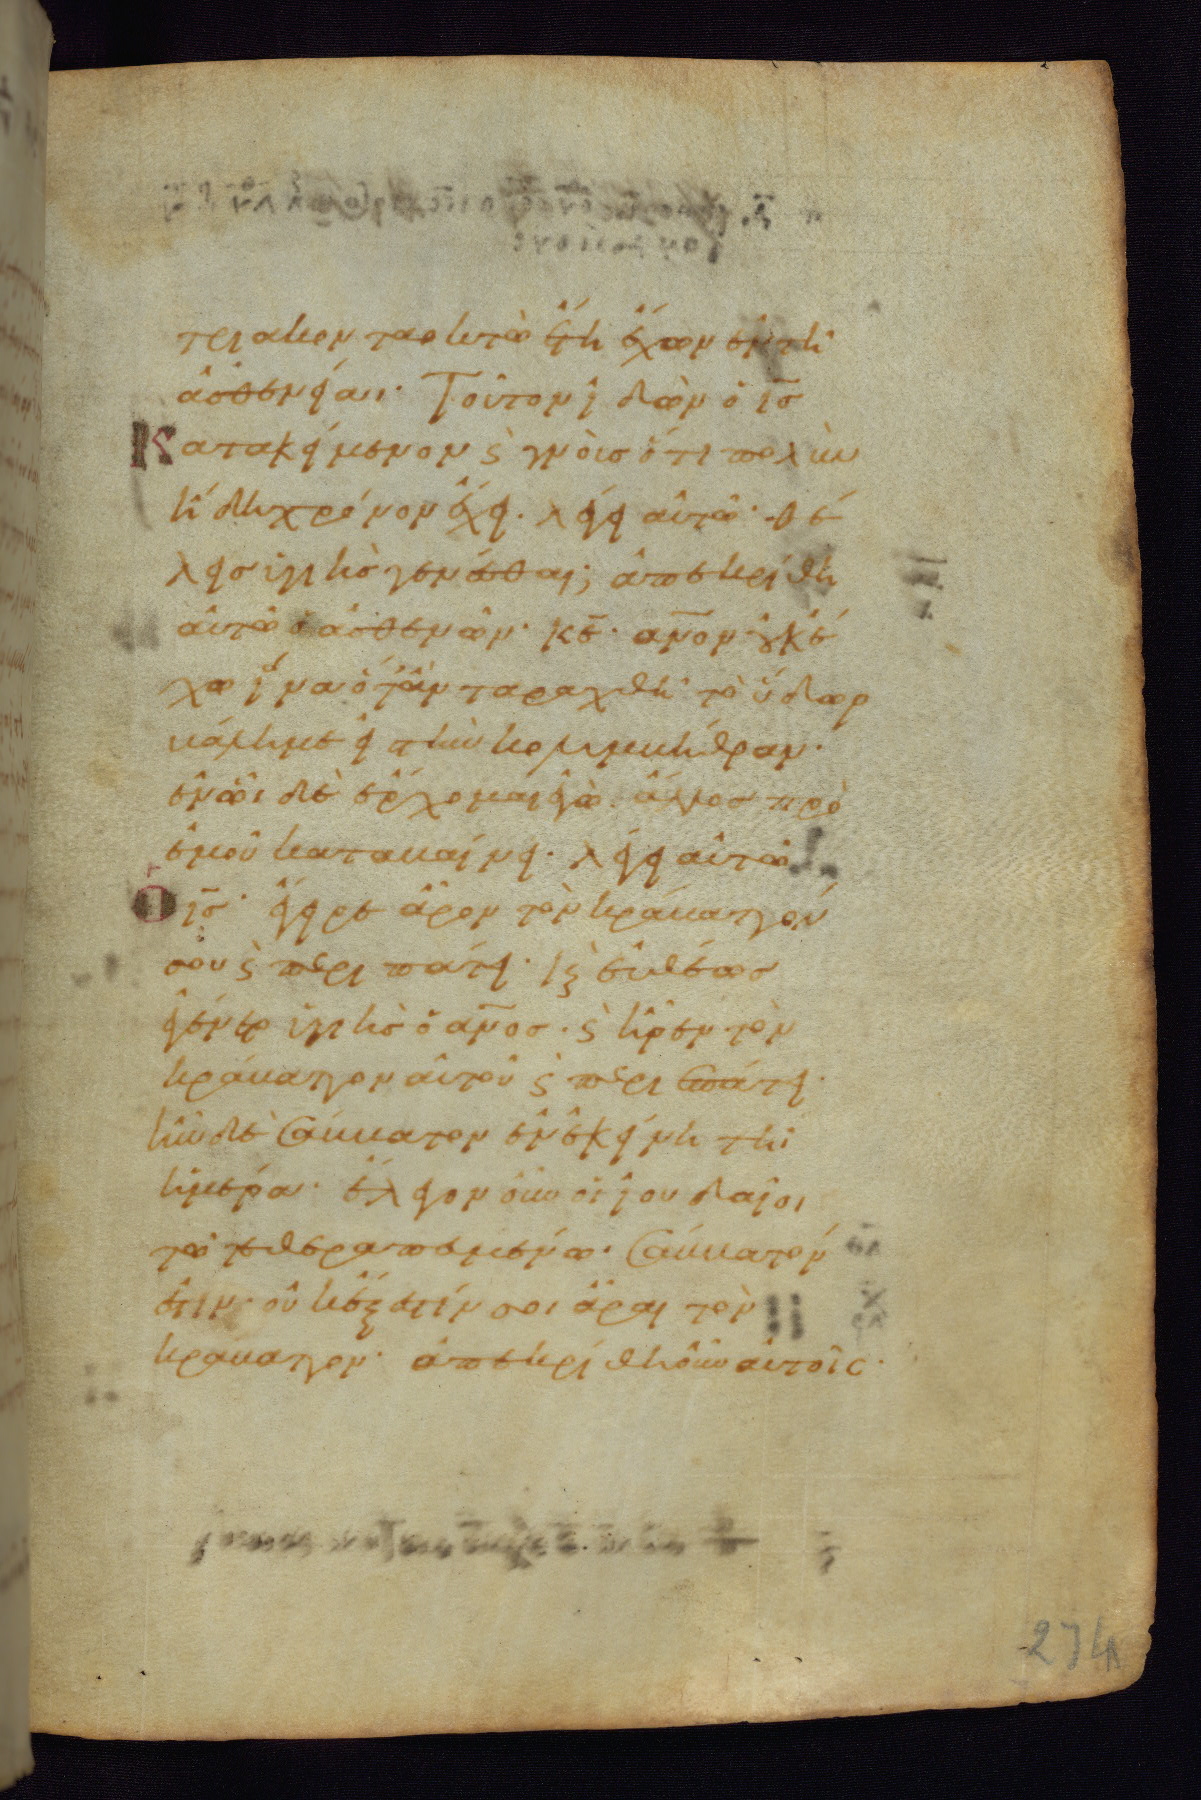 τριακονταοκτὼ ἔτη ἔχων ἐν τῆ
ἀσθενείαι· Τοῦτον ἰδὼν ὁ ις̅
Κατακείμενον ϗ γνοὺς ὅτι πολὺν
ἤδη χρόνον ἔχει· λέγει αὐτῶ· θέ
λεις ὑγιὴς γενέσθαι; ἀπεκρίθη
αὐτῶ ὁ ἀσθενῶν· κε̅· ανο̅ν οὐκ ἔ
χω ἵνα ὅταν ταραχθῆ τὸ ὕδωρ
βάλη με εἰς τὴν κολυμβήθραν·
ἐν ὧι δὲ ἔρχομαι ἐγὼ ἄλλος πρὸ
ἐμοῦ καταβαίνει· λέγει αὐτῶ
Ὁ ις̅· ἔγειρε ἆρον τὸν κράβαττόν
σου ϗ περιπάτει· ϗ εὐθέως
ἐγένετο ὑγιὴς ὁ ανο̅ς· ϗ ἦρεν τὸν
κράβαττον αὐτοῦ ϗ περιεπάτει·
ἦν δὲ σάββατον ἐν ἐκείνη τῆ
ἡμέρα· ἔλεγον οὖν οἱ ἰουδαῖοι
τῶ τεθεραπευμένω· σάββατόν
ἐστιν· οὐκ ἔξεστίν σοι ἆραι τὸν
κράβαττον· ἀπεκρίθη οὖν αὐτοῖς·
274